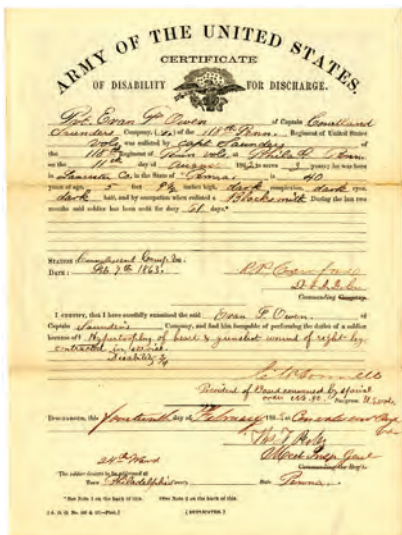 ARMY OF THE UNITED STATES.
CERTIFICATE
OF DISABILITY FOR DISCHARGE.
Pvt. Evan Owen of Captain Courtland
Saunders Company, of the 118th Penn. Regiment of United States
Vols was enlisted by Capt Saunders of
the 118th Regiment of Penn vols at Phila
on the 11th day of August 1862 to serve 3 years; he was born
in Lancaster Co. in the State of Penna. is 40
years of age, 5 feet inches high, dark complexion, dark eyes,
dark hair, and by occupation when enlisted a Blacksmith. During the last two
months said soldier has been unfit for duty 61 days.*
STATION: Convalescent Camp Va.
DATE: Feb 7th 1863.
Commanding Company.
I CERTIFY, that I have carefully examined the said Evan Owen. of
Captain Saunders Company, and find him incapable of performing the duties of a soldier
because of Hypertrophy of heart & gunshot wound of right
contracted in service.
Disability
President of Board convened by special
order Surgeon.
DISCHARGED, this fourteenth day of February 1863, at Convalescent Camp
Commanding the Reg't.
24th Ward
The soldier desires to be addressed at
Town Philadelphia State Penna.
*See Note 1 on the back of this. †See Note 2 on the back of this.
[DUPLICATES.]